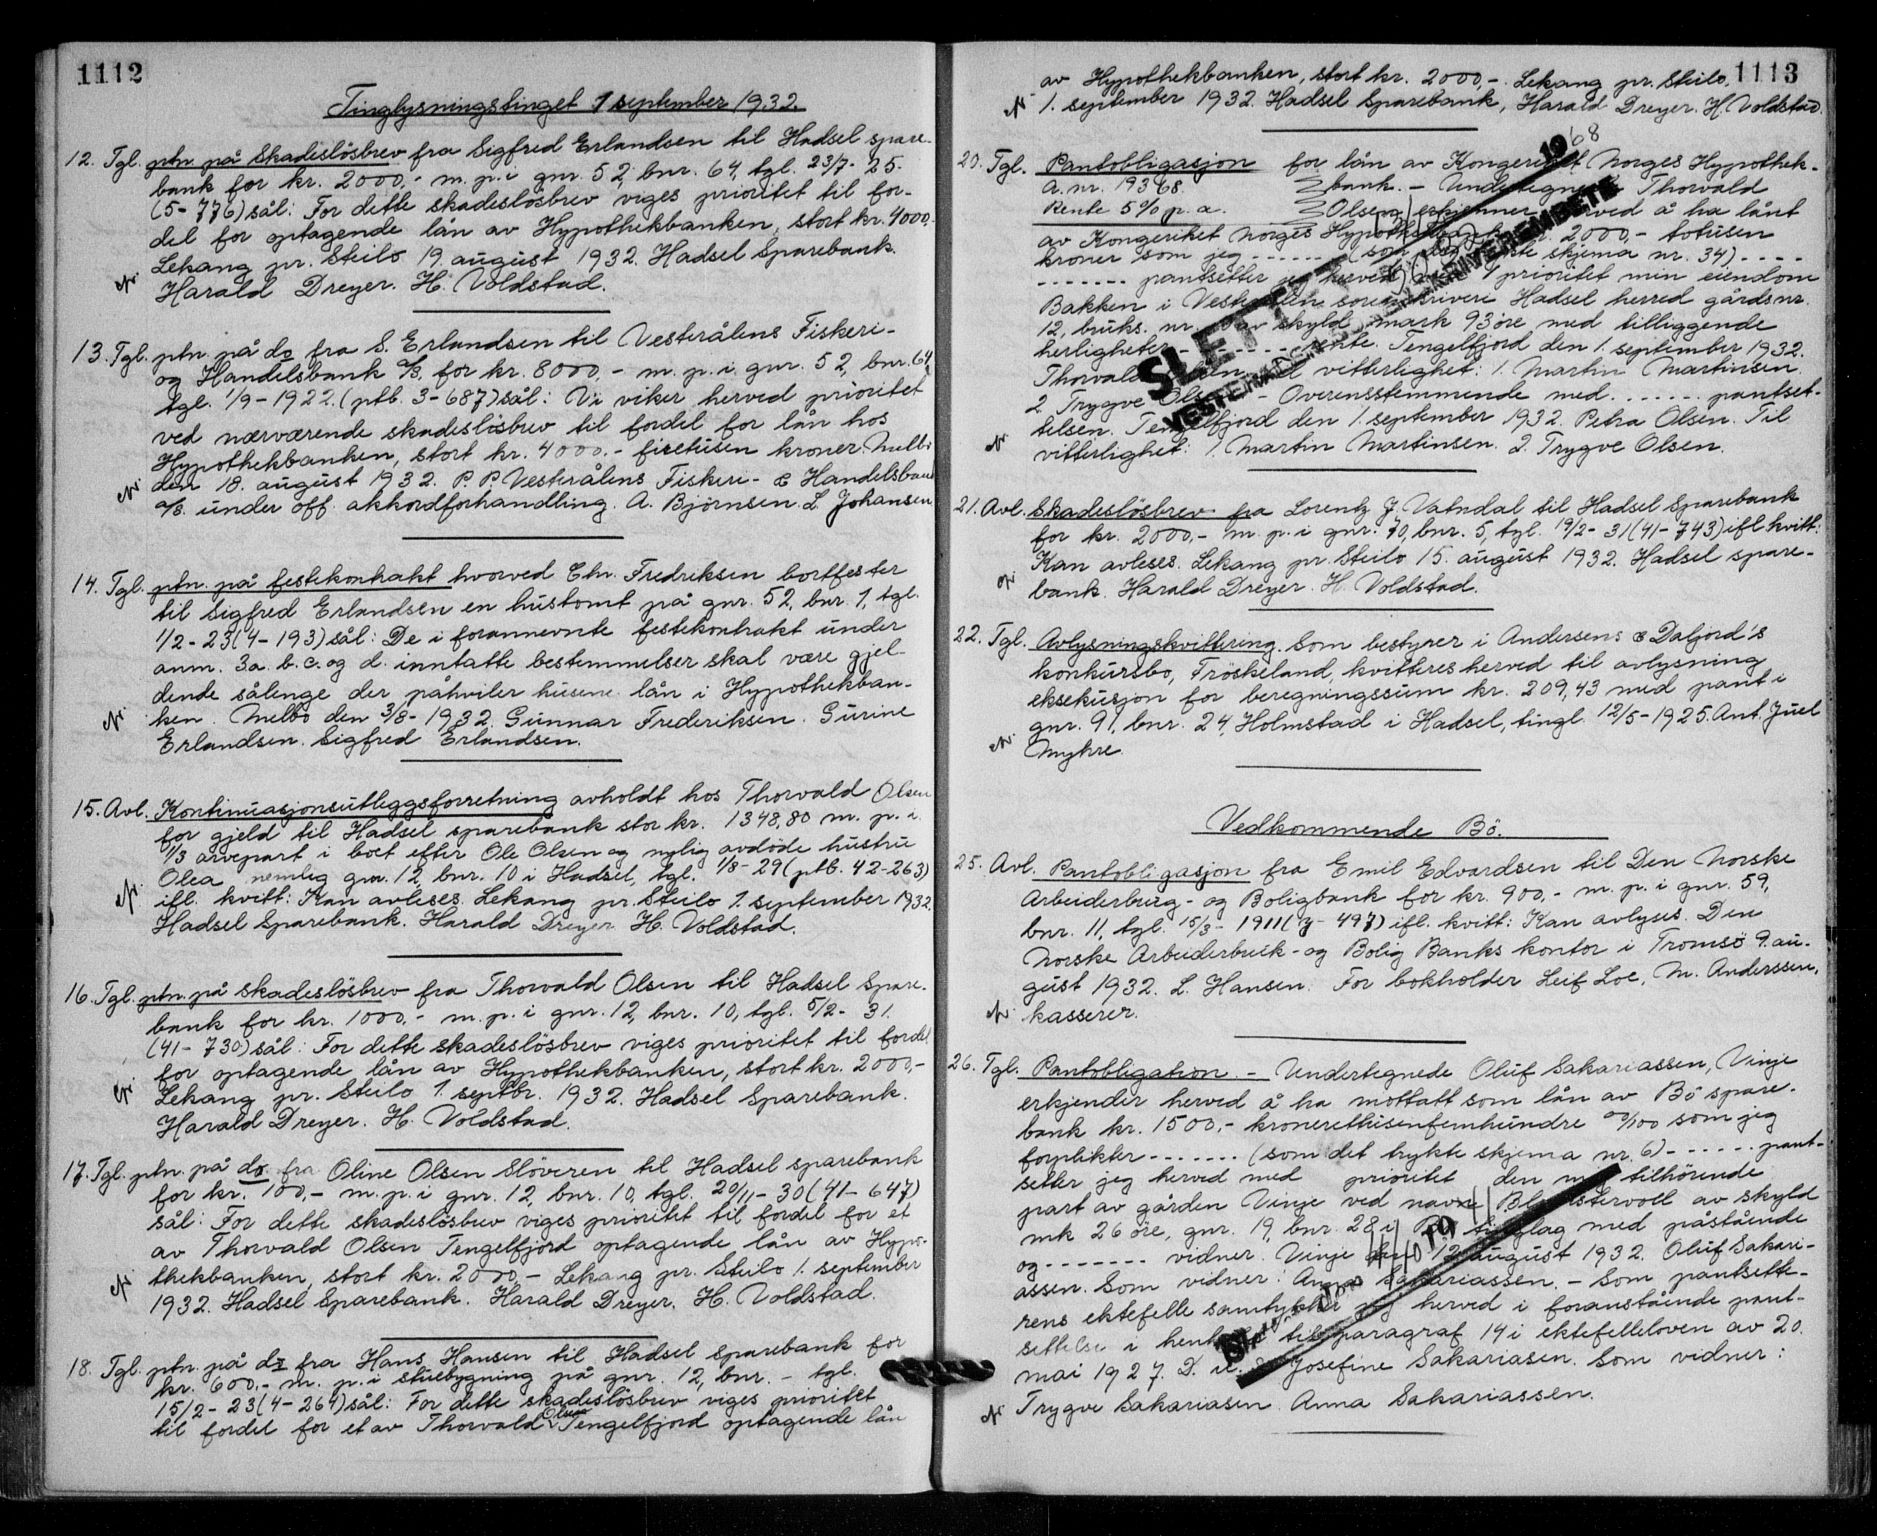 1112
Tinglysningstinget 1 september 1932.
12. Tgl. ptn på Skadeslösbrev fra Sigfred Erlandsen til Hadsel spare-
bank for kr. 2000,- m. p. i gnr. 52, bnr. 64, tgl. 23/7- 25.
(5-776) sål: For dette skadeslösbrev viges prioritet til for-
del for optagende lån av Hypothekbanken, stort kr. 4000,-
Lekang pr. Steilo 19. august 1932. Hadsel Sparebank.
Harald Dreyer. H. Voldstad.
13. Tgl. ptn på do fra S. Erlandsen til Vesterålens Fiskeri-
og Handelsbank A/S. for kr. 8000,- m. p. i gnr. 52, bnr. 64,
tgl. 1/9-1922. (ptb. 3-687) sål: Vi viker herved prioritet
ved nærværende skadeslösbrev til fordel for lån hos
Hypothekbanken, stort kr. 4000.- firetusen kroner. Melbo
den 18. august 1932. P. P. Vesterålens Fiskeri- & Handelsbank
A/S. under off. akkordforhandling. A. Bjørnsen. L. Johansen
14. Tgl. ptn. på festekontrakt hvorved Chr. Fredriksen bortfester
til Sigfred Erlandsen en hustomt på gnr. 52, bnr. 1, tgl.
1/2-23 (4-193) sål: De i forannevnte festekontrakt under
anm. 3a. b. c. og d. inntatte bestemmelser skal være gjel-
dende sålenge der påhviler husene lån i Hypothekban-
ken. Melbo den 3/8-1932. Gunnar Frederiksen. Gurine
Erlandsen. Sigfred Erlandsen.
15. Avl. Kontinuasjonsutleggsforretning avholdt hos Thorvald Olsen
for gjeld til Hadsel sparebank stor kr. 1348,80 m. p. i
1/3 arvepart i boet efter Ole Olsen og nylig avdöde hustru
Olea nemlig gnr. 12, bnr. 10 i Hadsel, tgl. 1/8-29 (ptb. 42-263)
ifl. kvitt: Kan avleses. Lekang pr. Steilo 1. september 1932.
Hadsel Sparebank. Harald Dreyer H. Voldstad.
16. Tgl. ptn. på skadeslösbrev fra Thorvald Olsen til Hadsel Spare-
bank for kr. 1000.- m. p. i gnr. 12, bnr. 10, tgl. 5/2- 31.
(41-730) sål: For dette skadeslösbrev viges prioritet til fordel
for optagende lån av Hypothekbanken, stort kr. 2000,-
Lekang pr. Steilo 1. septbr. 1932. Hadsel Sparebank.
Harald Dreyer. H. Voldstad.
17. Tgl. ptn. på do. fra Oline Olsen Slöveren til Hadsel sparebank
for kr. 100,- m. p. i gnr. 12, bnr. 10, tgl. 20/11-30 (41-647)
sål: For dette skadeslösbrev viges prioritet til fordel for et
av Thorvald Olsen Tengelfjord optagende lån av Hypo-
thekbanken, stort kr. 2000,- Lekang pr. Steilo 1. september
1932. Hadsel Sparebank. Harald Dreyer. H. Voldstad.
18. Tgl. ptn. på do fra Hans Hansen til Hadsel sparebank for
kr. 600,- m. p. i stuebygning på gnr. 12, bnr. - tgl.
15/2-23 (4-264) sål: For dette skadeslösbrev viges prioritet
til fordel for et av Thorvald Olsen Tengelfjord optagende lån
1113
av Hypothekbanken, stort kr. 2000,-. Lekang pr. Steilo,
1. september 1932. Hadsel Sparebank, Harald Dreyer. H. Voldstad.
20. Tgl. Pantobligasjon for lån av Kongeriket Norges Hypothek-
a. nr. 19368. bank. - Undertegnede Thorvald
Rente 5 % p. a. Olsen erkjenner herved å ha lånt
av Kongeriket Norges Hypothekbank kr. 2000,- totusen
kroner som jeg ------ (som det trykte skjema nr. 34) ----
------- pantsetter jeg herved med 1 prioritet min eiendom
Bakken i Vesterålen sorenskriveri Hadsel herred gårdsnr.
12, bruks. nr. 10 av skyld mark 93 öre med tilliggende
herligheter ------- rente. Tengelfjord den 1. september 1932.
Thorvald Olsen. Til vitterlighet: 1. Martin Martinsen.
2. Trygve Olsen. - Overensstemmende med ....... pantset-
telsen. Tengelfjord den 1. september 1932. Petra Olsen. Til
vitterlighet: 1. Martin Martinsen. 2. Trygve Olsen.
1968
SLETTET
VESTERÅLEN SORENSKRIVEREMBETE
21. Avl. Skadeslösbrev fra Lorentz J. Vatndal til Hadsel Sparebank
for kr. 2000,- m. p. i gnr. 70, bnr. 5, tgl. 19/2-31 (41-743) ifl. kvitt:
Kan avleses. Lekang pr. Steilo 15. august 1932. Hadsel spare-
bank. Harald Dreyer. H. Voldstad.
22. Tgl. Avlysningskvittering. Som bestyrer i Andersens & Dalfjord's
konkursbo, Fröskeland, kvitteres herved til avlysning
eksekusjon for beregningssum kr. 209,43 med pant i
gnr. 91, bnr. 24, Holmstad i Hadsel, tingl. 12/5-1925. Ant. Juel
Myhre.
Vedkommende Bö.
25. Avl. Pantobligasjon fra Emil Edvardsen til Den Norske
Arbeiderbrug- og Boligbank for kr. 900,- m. p. i gnr. 59,
bnr. 11, tgl. 15/3-1911 (7-497) ifl. kvitt: Kan avlyses. Den
Norske Arbeiderbruk- og Bolig Banks kontor i Tromsö 9. au-
gust 1932. L. Hansen. For bokholder Leif Loe, M. Anderssen,
kasserer.
26. Tgl. Pantobligation. - Undertegnede Oluf Sakariassen, Vinje
erkjender herved å ha mottatt som lån av Bö spare-
bank kr. 1500,- kroneretthusenfemhundre 00/100 som jeg
forplikter ------- (som det trykte skjema nr. 6) ------ pant-
setter jeg herved med prioritet den mig tilhörende
part av gården Vinje ved navn Blomstervoll av skyld
mk 26 öre, gnr. 19, bnr. 28 i Bö tinglag med påstående
og ------- vidner. Vinje den 12 august 1932. Oluf Sakari-
assen. Som vidner: Anna Sakariassen. - Som pantsette-
rens ektefelle samtykker jeg herved i foranstående pant-
settelse i henhold til paragraf 14 i ektefelleloven av 20.
mai 1927. D. u. Josefine Sakariasen. Som vidner:
Trygve Sakariasen. Anna Sakariassen.